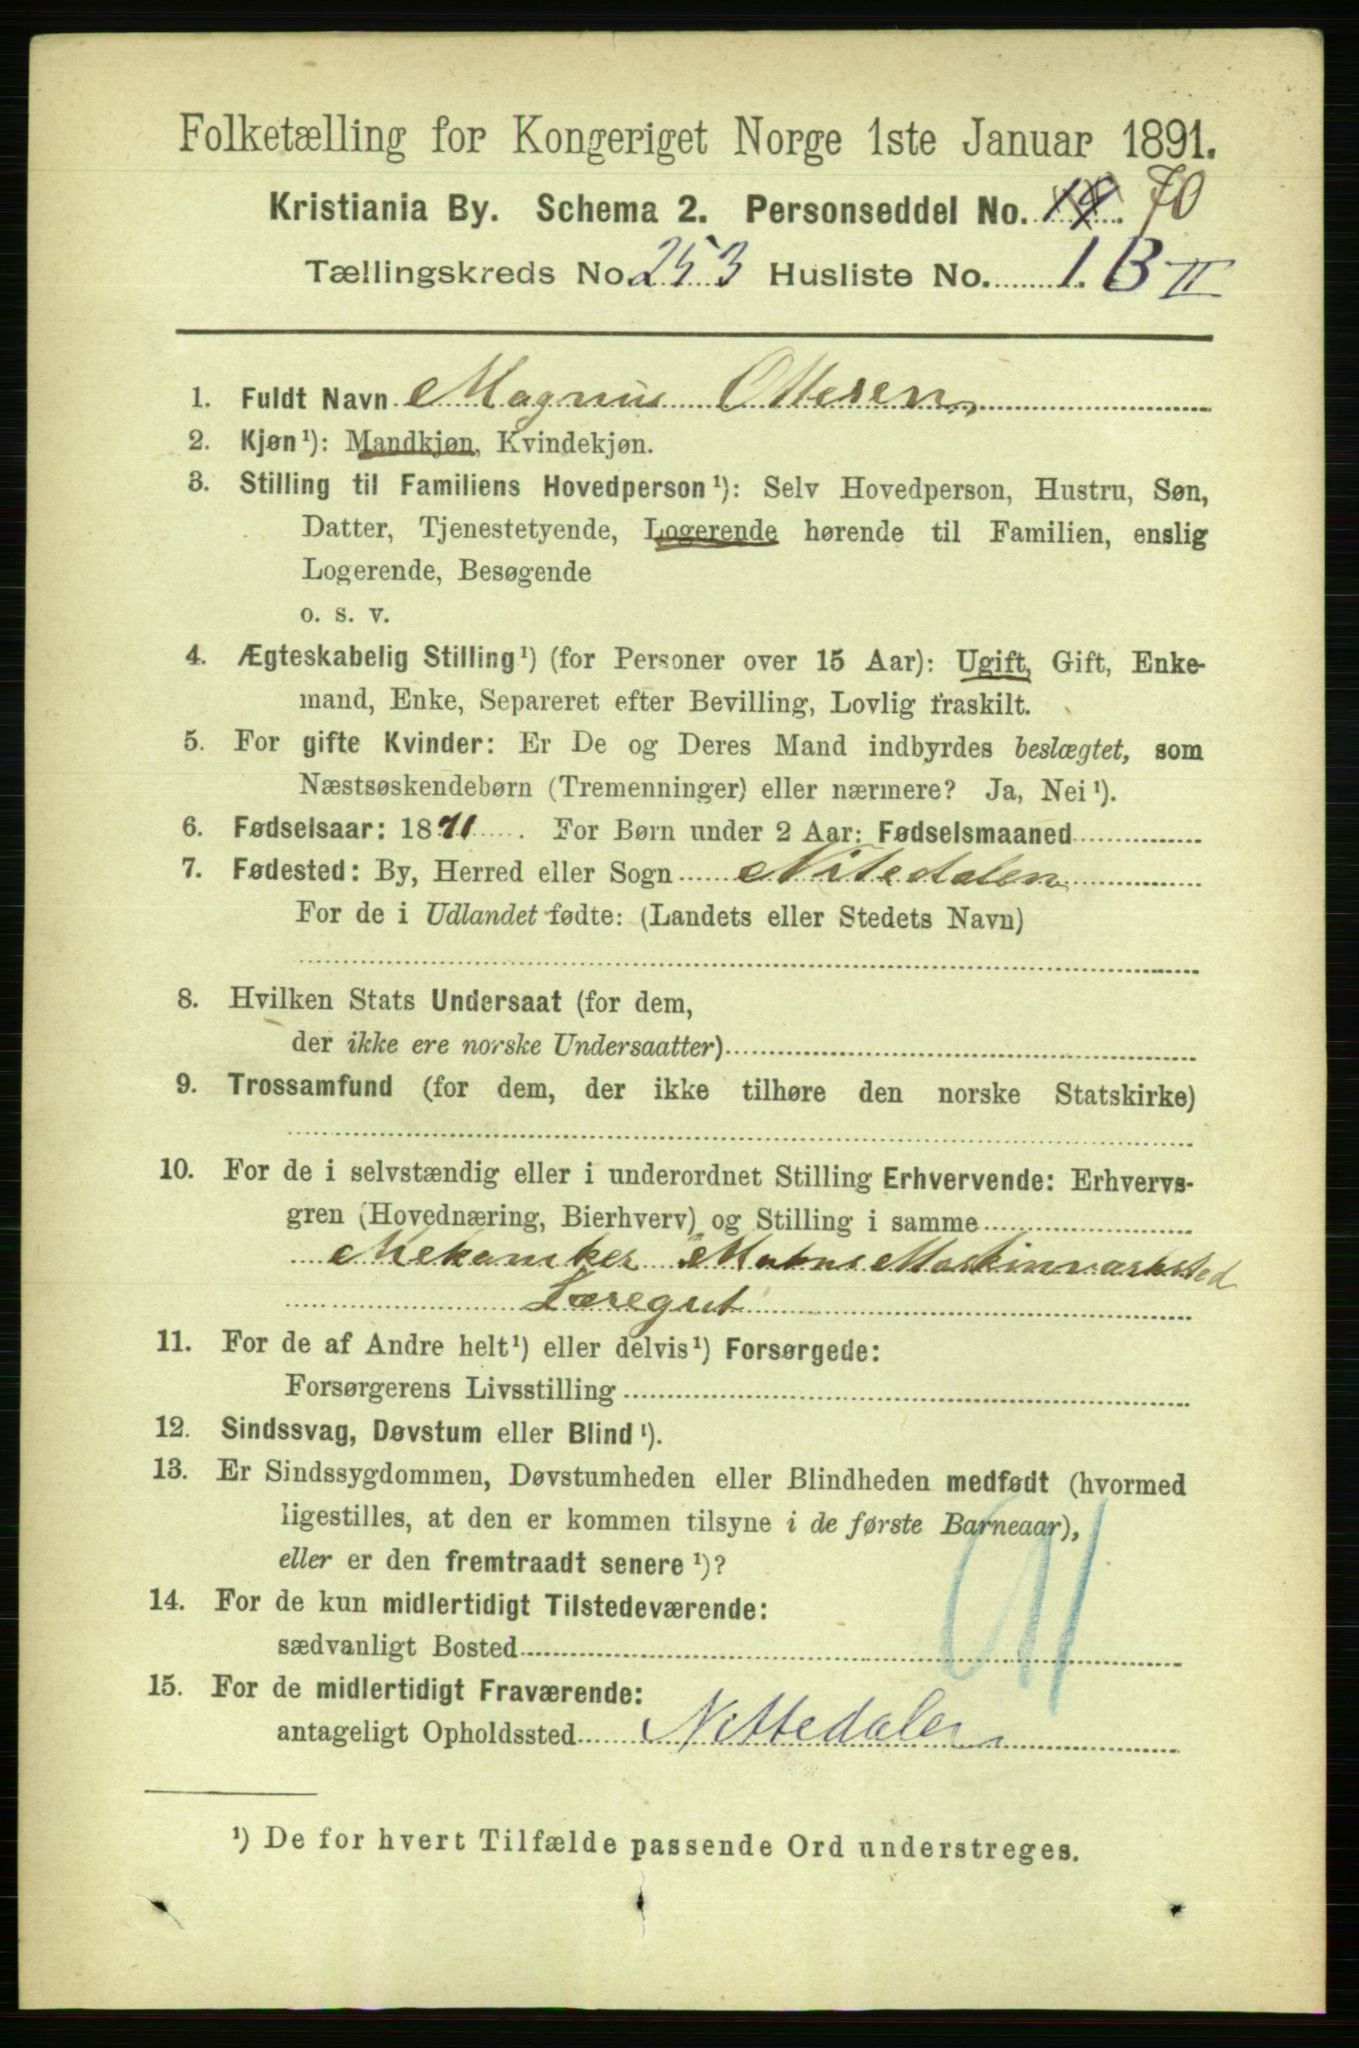 Folketælling for Kongeriget Norge 1ste Januar 1891.
Kristiania By. Schema 2. Personseddel No. 70
Tællingskreds No. 253 Husliste No. 1. B II
1. Fuldt Navn Magnus Ottesen
2. Kjøn¹): Mandkjøn, Kvindekjøn.
3. Stilling til Familiens Hovedperson¹): Selv Hovedperson, Hustru, Søn,
Datter, Tjenestetyende, Logerende hørende til Familien, enslig
Logerende, Besøgende
o. s. v.
4. Ægteskabelig Stilling¹) (for Personer over 15 Aar): Ugift, Gift, Enke-
mand, Enke, Separeret efter Bevilling, Lovlig fraskilt.
5. For gifte Kvinder: Er De og Deres Mand indbyrdes beslægtet, som
Næstsøskendebørn (Tremenninger) eller nærmere? Ja, Nei¹).
6. Fødselsaar: 1871. For Børn under 2 Aar: Fødselsmaaned
7. Fødested: By, Herred eller Sogn Nitedalen
For de i Udlandet fødte: (Landets eller Stedets Navn)
8. Hvilken Stats Undersaat (for dem,
der ikke ere norske Undersaatter)
9. Trossamfund (for dem, der ikke tilhøre den norske Statskirke)
10. For de i selvstændig eller i underordnet Stilling Erhvervende: Erhvervs-
gren (Hovednæring, Bierhverv) og Stilling i samme
Mekaniker Maskinværksted
Læregut
11. For de af Andre helt¹) eller delvis¹) Forsørgede:
Forsørgerens Livsstilling
12. Sindssvag, Døvstum eller Blind¹).
13. Er Sindssygdommen, Døvstumheden eller Blindheden medfødt (hvormed
ligestilles, at den er kommen tilsyne i de første Barneaar),
eller er den fremtraadt senere¹)?
14. For de kun midlertidigt Tilstedeværende:
sædvanligt Bosted
15. For de midlertidigt Fraværende:
antageligt Opholdssted Nittedalen
¹) De for hvert Tilfælde passende Ord understreges.